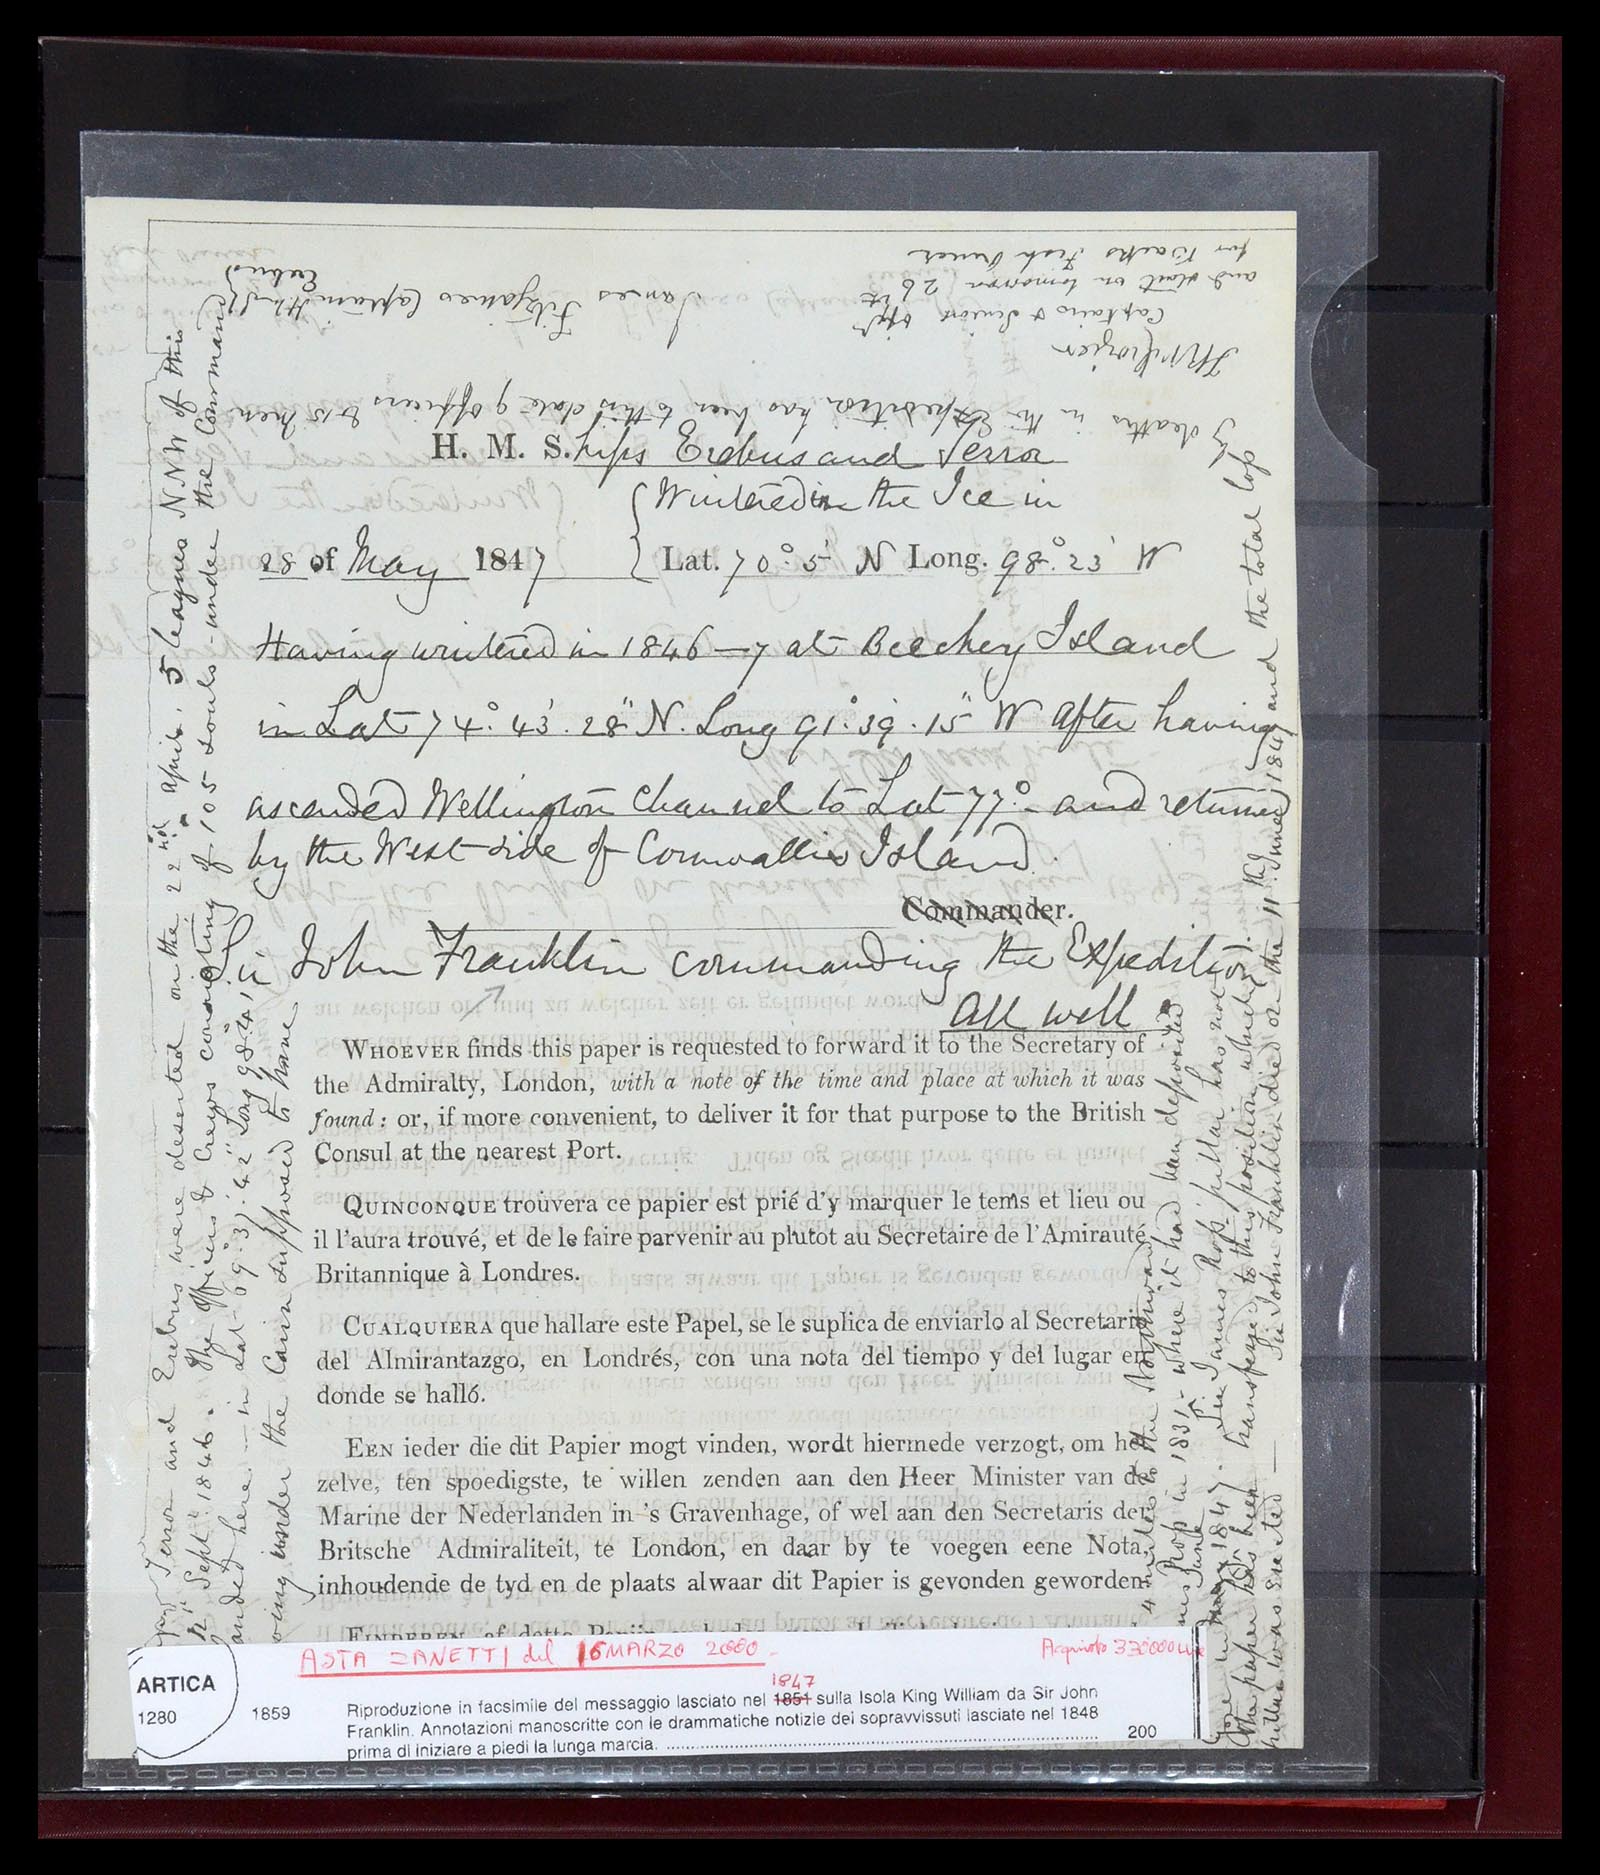 H. M. S.hips Erebus and Terror
Wintered in the Ice in
28 of May 1847 Lat. 70°. 5' N Long. 98°. 23' W
Having wintered in 1846—7 at Beechey Island
in Lat 74°. 43'. 28" N. Long 91°. 39'. 15" W after having
ascended Wellington Channel to Lat 77°— and returned
by the West side of Cornwallis Island.
Commander.
Sir John Franklin commanding the Expedition.
All well
WHOEVER finds this paper is requested to forward it to the Secretary of
the Admiralty, London, with a note of the time and place at which it was
found: or, if more convenient, to deliver it for that purpose to the British
Consul at the nearest Port.
QUINCONQUE trouvera ce papier est prié d'y marquer le tems et lieu ou
il l'aura trouvé, et de le faire parvenir au plutot au Secretaire de l'Amirauté
Britannique à Londres.
CUALQUIERA que hallare este Papel, se le suplica de enviarlo al Secretario
del Almirantazgo, en Londrés, con una nota del tiempo y del lugar en
donde se halló.
EEN ieder die dit Papier mogt vinden, wordt hiermede verzogt, om het
zelve, ten spoedigste, te willen zenden aan den Heer Minister van de
Marine der Nederlanden in 's Gravenhage, of wel aan den Secretaris der
Britsche Admiraliteit, te London, en daar by te voegen eene Nota,
inhoudende de tyd en de plaats alwaar dit Papier is gevonden geworden
Terror and Erebus were deserted on the 22nd April. 5 leagues N.N.W of this
Sept. 1846. The Officers & Crews consisting of 105 souls under the Command
landed here — in Lat. 69°. 37'. 42" Long 98°. 41'
under the Cairn supposed to have
4 miles to the Northward
Ross in 1831 — where it had been deposited
June 1847. Sir James Ross' pillar has not
the paper has been transferred to this position which
pillar was erected — Sir John Franklin died on the 11th June 1847 and the total loss
by deaths in the Expedition has been to this date 9 officers & 15 men
James Fitzjames Captain H.M.S.
Erebus
FRMCrozier
Captain & Senior Offr
and start on tomorrow 26th
for Backs Fish River
ASTA ZANETTI del 16 MARZO 2000
Acquisto 330000 Lire
ARTICA
1280
1847
1859 Riproduzione in facsimile del messaggio lasciato nel 1851 sulla Isola King William da Sir John
Franklin. Annotazioni manoscritte con le drammatiche notizie dei sopravvissuti lasciate nel 1848
prima di iniziare a piedi la lunga marcia. 200